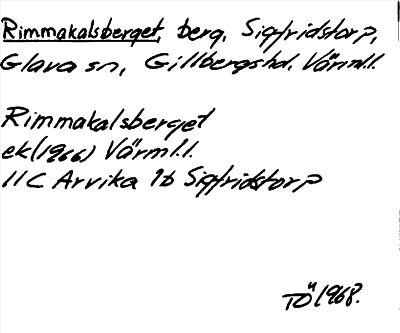 Rimmakalsberget, berg, Sigfridstorp,
Glava sn, Gillbergshd. Värml.l.
Rimmakalsberget
ek (1966) Värml.l.
11C Arvika 1b Sigfridstorp
TÖ 1968.